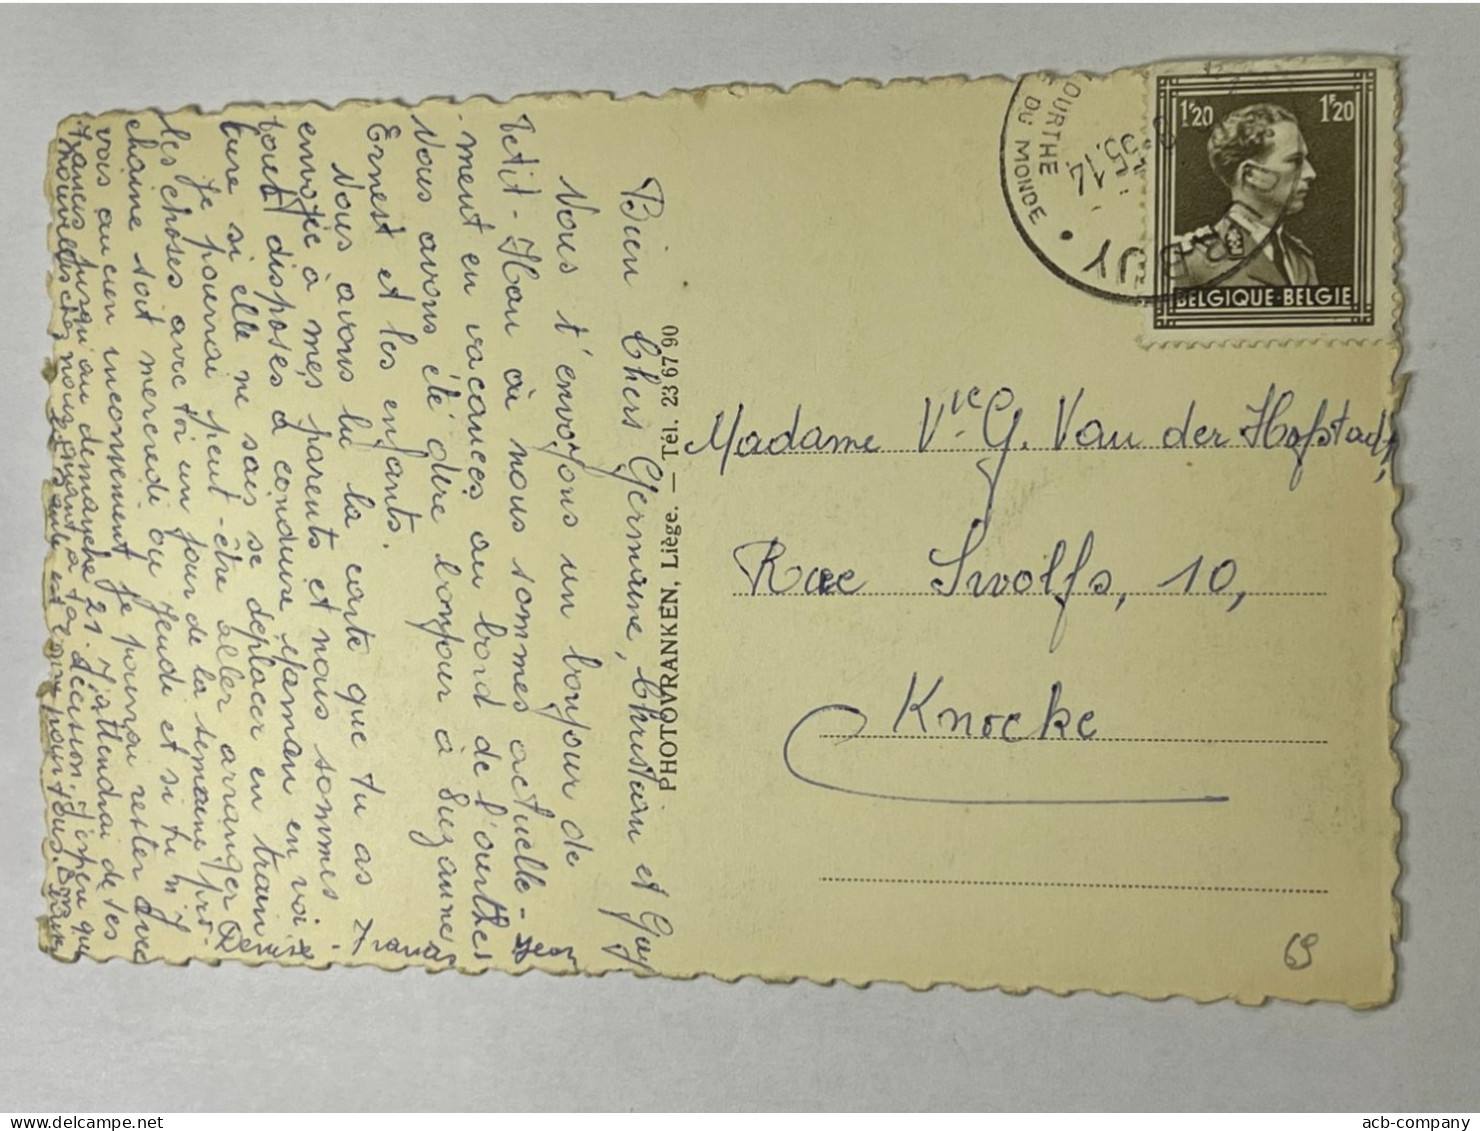 Bien Chers Germaine, Christian et Guy
Nous t'envoyons un bonjour de
Petit-Han où nous sommes actuelle-
ment en vacances au bord de l'ourthe
Nous avons été dire bonjour à Suzanne
Ernest et les enfants.
Nous avons lu la carte que tu as
envoyée à mes parents et nous sommes
tout disposés à conduire maman en voi-
ture si elle ne sais se déplacer en train
Je pourrai peut-être aller arranger
les choses avec toi un jour de la semaine pro-
chaine soit mercredi ou jeudi et si tu n'y
vois aucun inconvénient je pourrai rester avec
Francis jusqu'au dimanche 21. J'attendrai de tes
nouvelles chez nous quant à ta décision. J'espère que
la santé est bonne pour tous. Bons
Baisers
Denise
Francis
Jean
PHOTOVRANKEN, Liège. — Tél. 23 67 90
OURTHE
DU MONDE
14
1F20 1F20
BELGIQUE-BELGIE
Madame Vve G. Van der Hofstadt,
Rue Swolfs, 10,
Knocke
69
acb-company